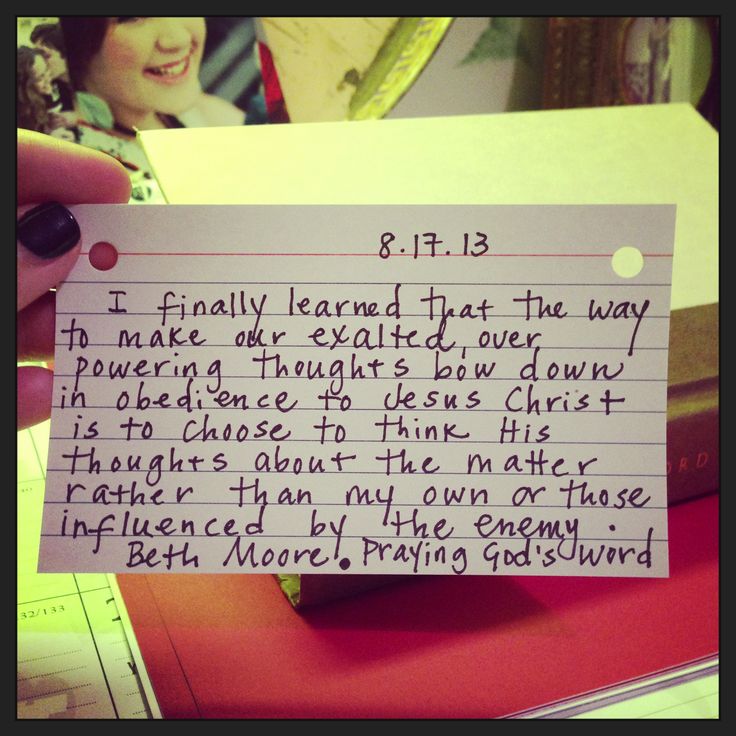 8.17.13
I finally learned that the way
to make our exalted, over
powering thoughts bow down
in obedience to Jesus Christ
is to choose to think His
thoughts about the matter
rather than my own or those
influenced by the enemy.
Beth Moore. Praying God's Word
ORD
32/133